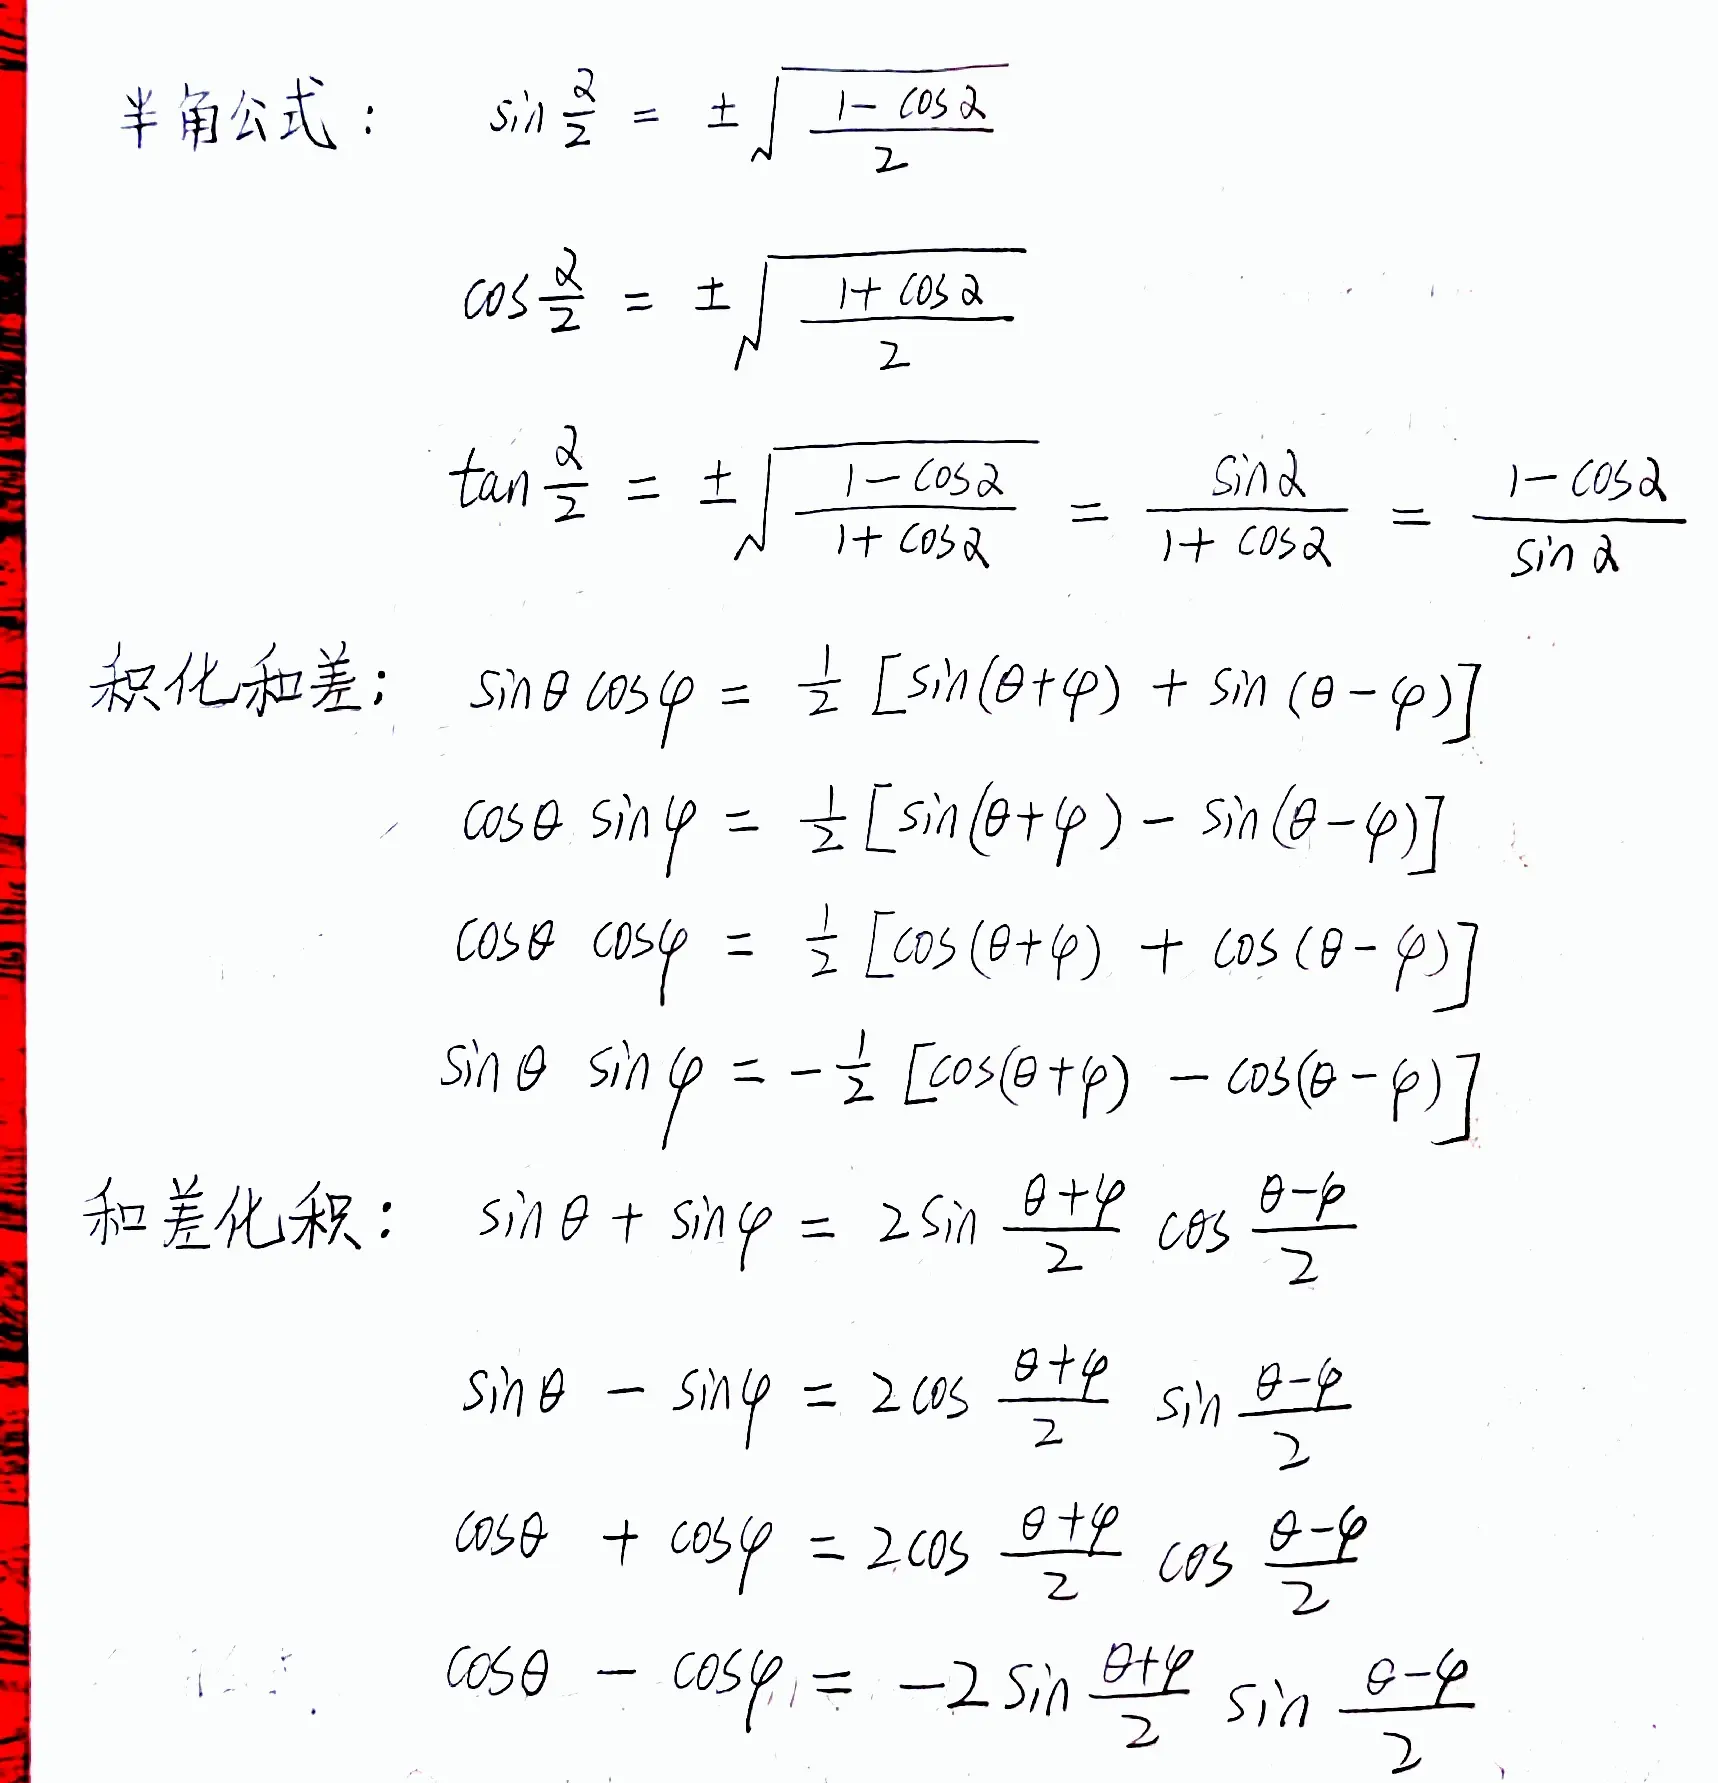 半角公式: sin α/2 = ±√((1-cosα)/2)
cos α/2 = ±√((1+cosα)/2)
tan α/2 = ±√((1-cosα)/(1+cosα)) = sinα/(1+cosα) = (1-cosα)/sinα
积化和差: sinθ cosφ = 1/2 [sin(θ+φ) + sin(θ-φ)]
cosθ sinφ = 1/2 [sin(θ+φ) - sin(θ-φ)]
cosθ cosφ = 1/2 [cos(θ+φ) + cos(θ-φ)]
sinθ sinφ = -1/2 [cos(θ+φ) - cos(θ-φ)]
和差化积: sinθ + sinφ = 2sin (θ+φ)/2 cos (θ-φ)/2
sinθ - sinφ = 2cos (θ+φ)/2 sin (θ-φ)/2
cosθ + cosφ = 2cos (θ+φ)/2 cos (θ-φ)/2
cosθ - cosφ = -2sin (θ+φ)/2 sin (θ-φ)/2